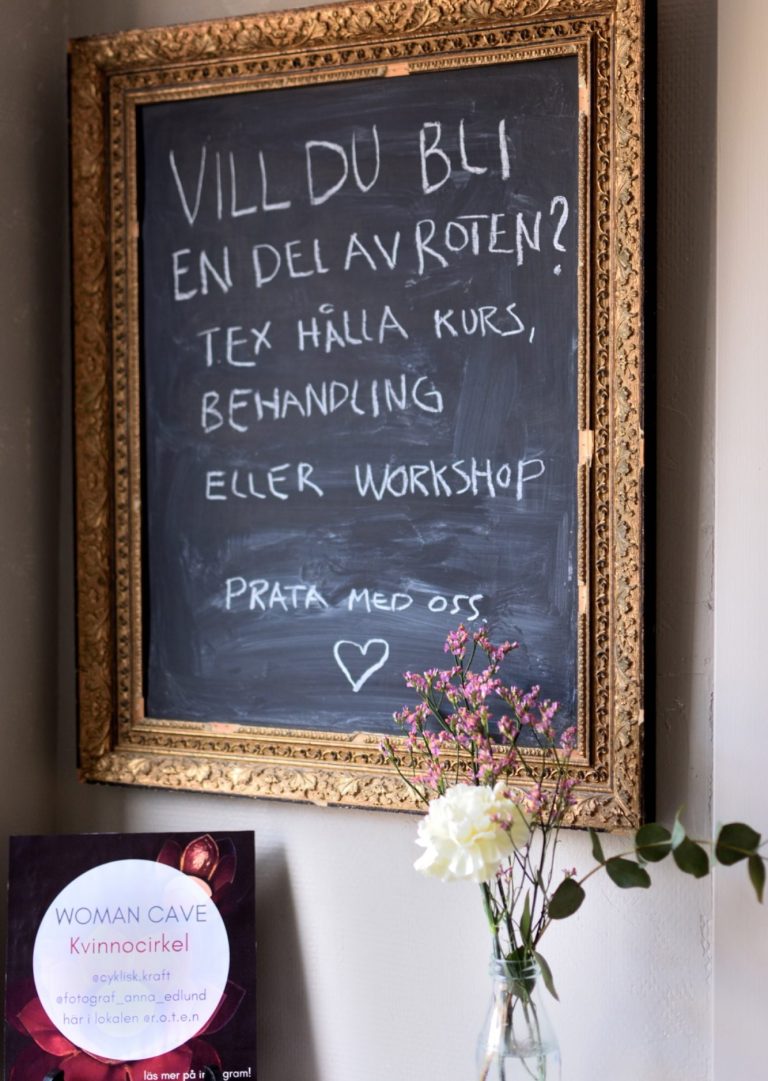 VILL DU BLI
EN DEL AV ROTEN?
T.EX HÅLLA KURS,
BEHANDLING
ELLER WORKSHOP
PRATA MED OSS.
WOMAN CAVE
Kvinnocirkel
@cyklisk.kraft
@fotograf_anna_edlund
här i lokalen @r.o.t.e.n
läs mer på